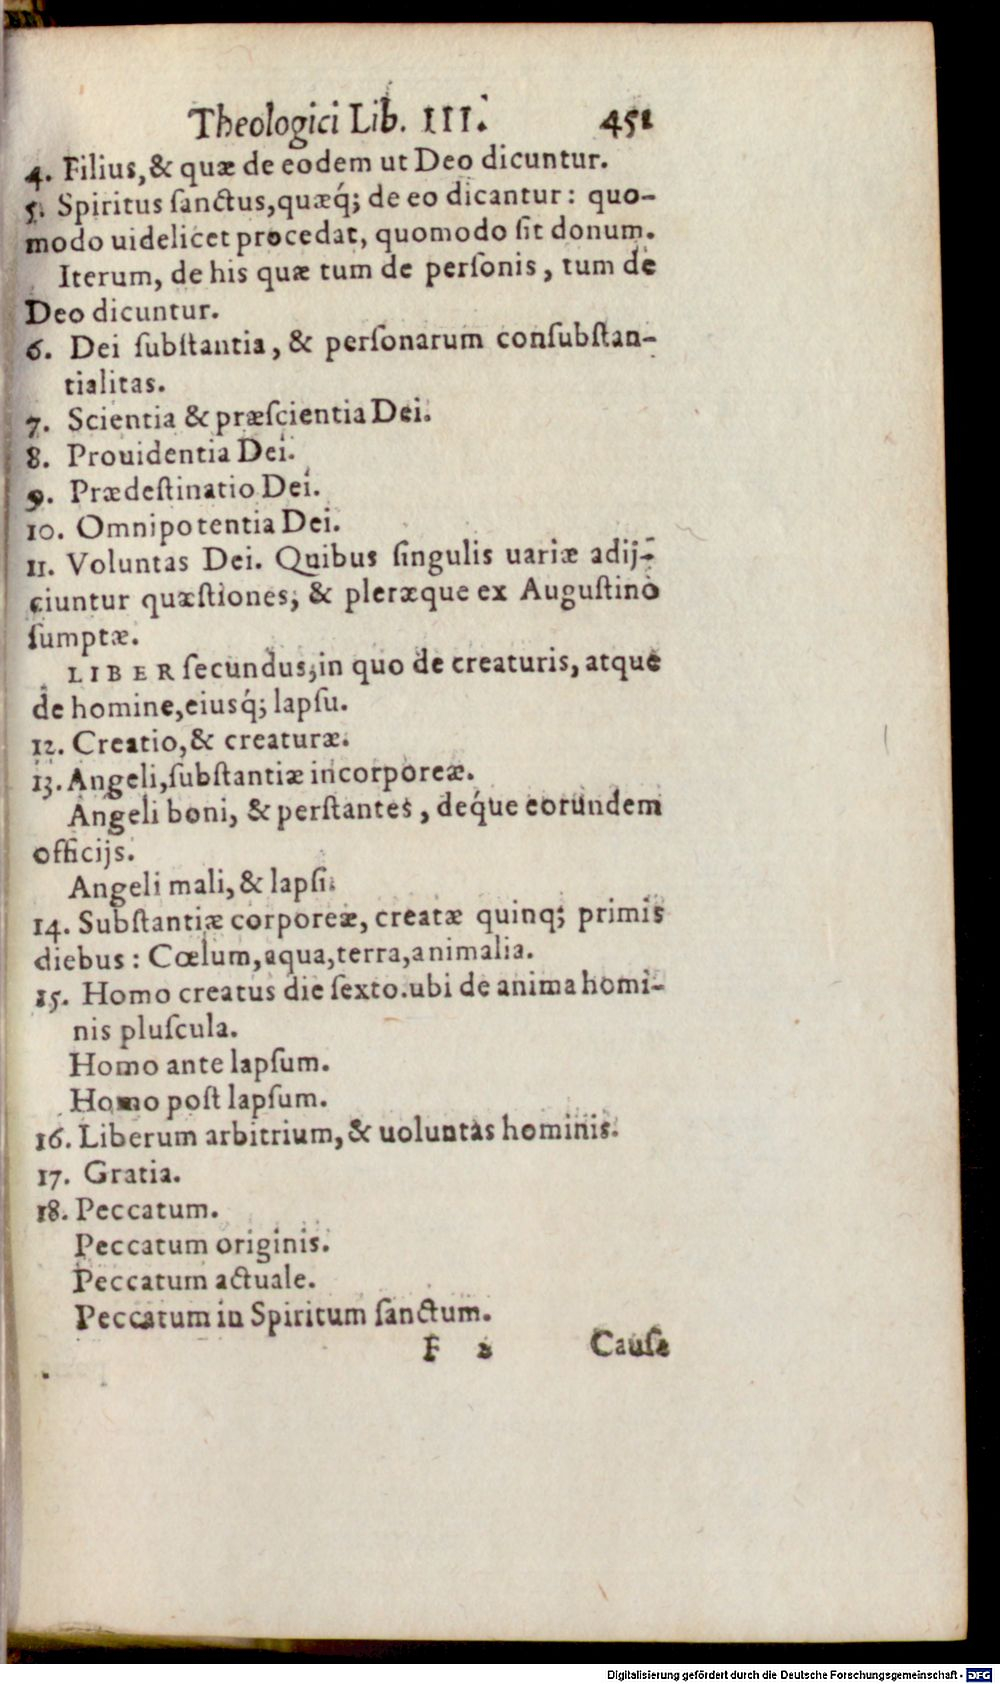 Theologici Lib. III. 451
4. Filius, & quæ de eodem ut Deo dicuntur.
5. Spiritus ſanctus, quæq́; de eo dicantur: quo-
modo uidelicet procedat, quomodo ſit donum.
Iterum, de his quæ tum de perſonis, tum de
Deo dicuntur.
6. Dei ſubſtantia, & perſonarum conſubſtan-
tialitas.
7. Scientia & præſcientia Dei.
8. Prouidentia Dei.
9. Prædeſtinatio Dei.
10. Omnipotentia Dei.
11. Voluntas Dei. Quibus ſingulis uariæ adij-
ciuntur quæſtiones, & pleræque ex Auguſtino
ſumptæ.
LIBER ſecundus, in quo de creaturis, atque
de homine, eiusq́; lapſu.
12. Creatio, & creaturæ.
13. Angeli, ſubſtantiæ incorporeæ.
Angeli boni, & perſtantes, deq́ue eorundem
officijs.
Angeli mali, & lapſi.
14. Subſtantiæ corporeæ, creatæ quinq; primis
diebus: Cœlum, aqua, terra, animalia.
15. Homo creatus die ſexto. ubi de anima homi-
nis pluſcula.
Homo ante lapſum.
Homo poſt lapſum.
16. Liberum arbitrium, & uoluntas hominis.
17. Gratia.
18. Peccatum.
Peccatum originis.
Peccatum actuale.
Peccatum in Spiritum ſanctum.
F 2 Cauſa
Digitalisierung gefördert durch die Deutsche Forschungsgemeinschaft - DFG